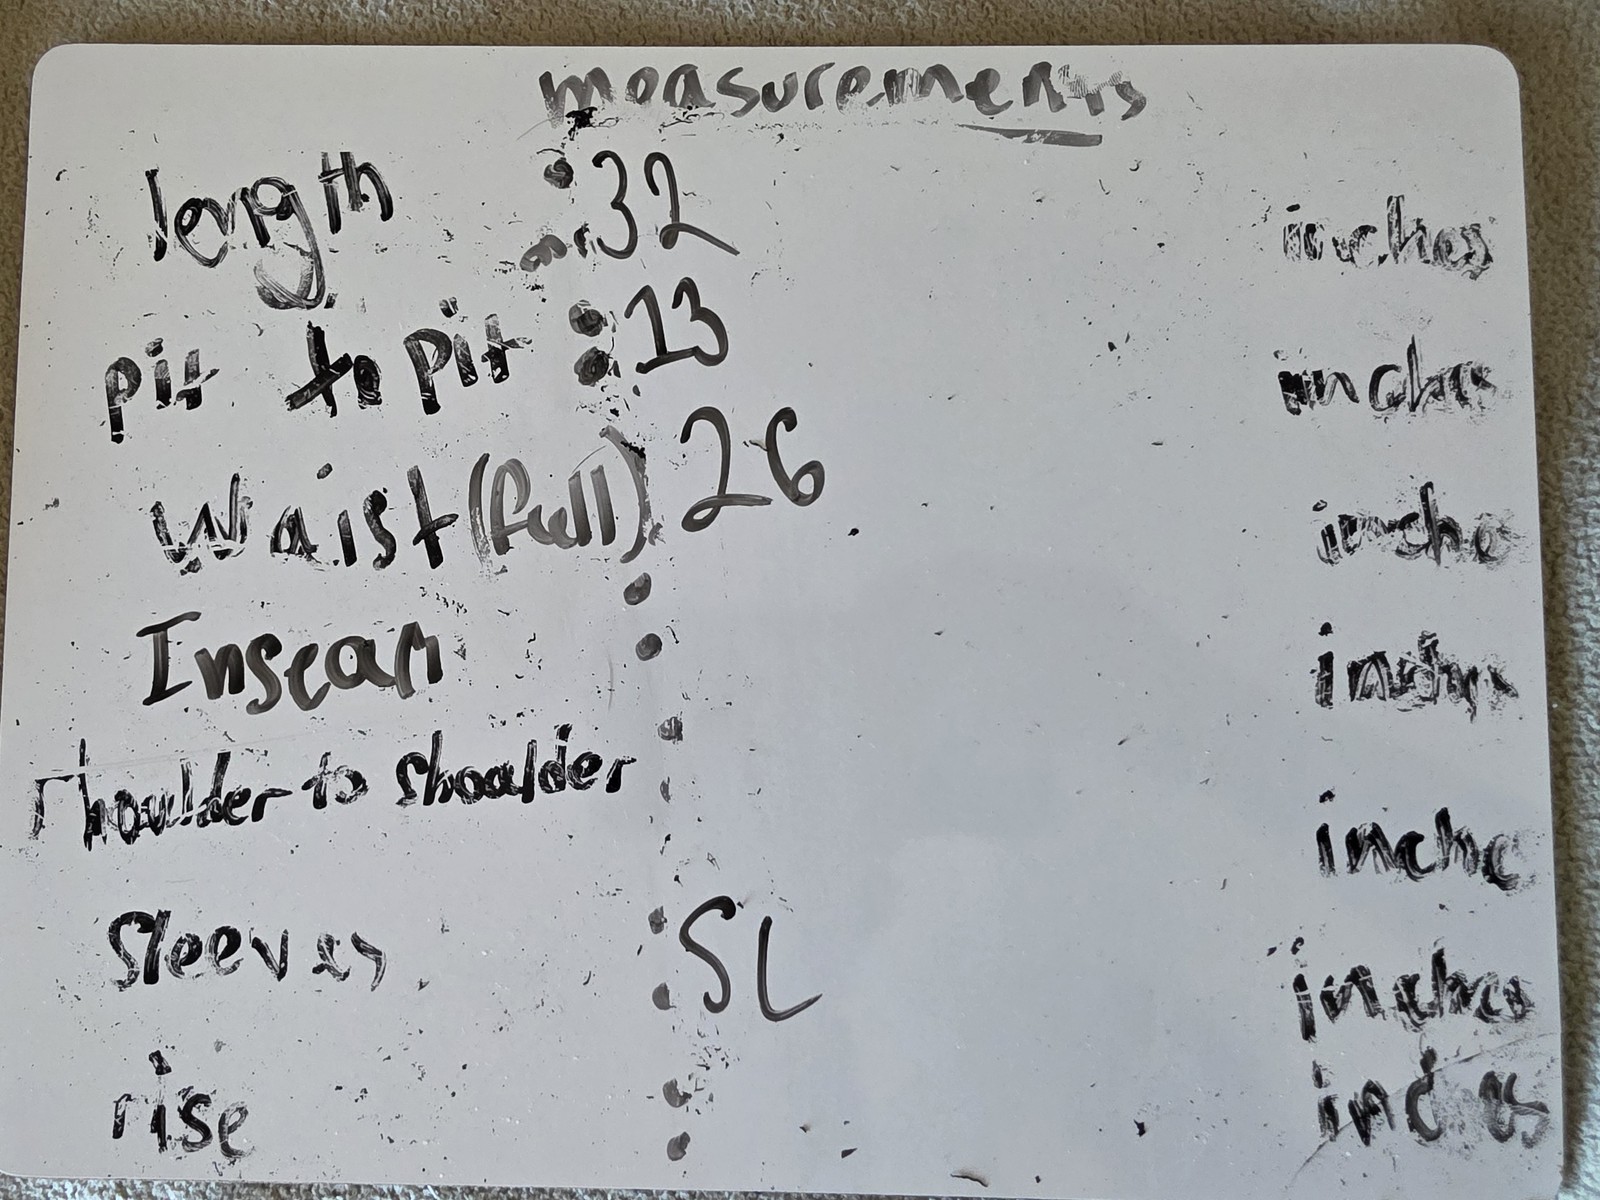 measurements
length : 32 inches
pit to pit : 13 inches
Waist (full) : 26 inches
Inseam : inches
shoulder to shoulder : inches
Sleeves : SL inches
rise : inches